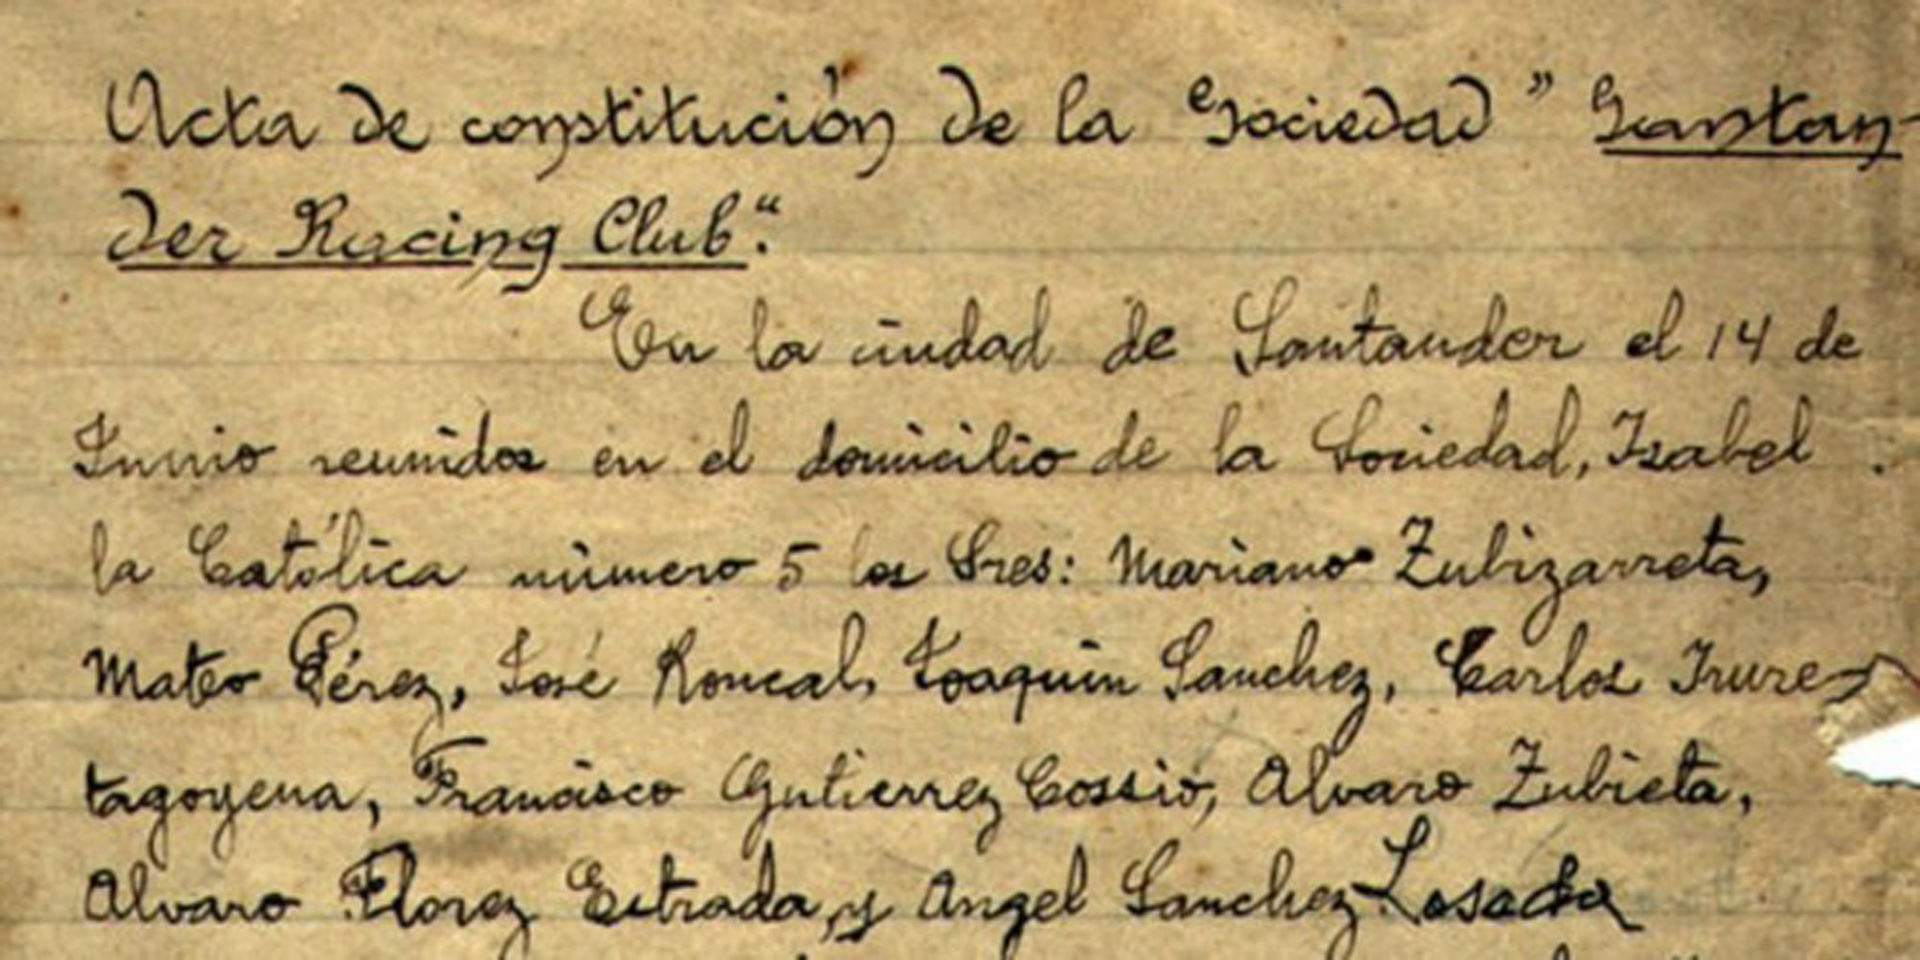 Acta de constitución de la Sociedad " Santan-
der Racing Club".
En la ciudad de Santander el 14 de
Junio reunidos en el domicilio de la Sociedad, Isabel
la Católica número 5 los Sres: Mariano Zubizarreta,
Mateo Pérez, José Roncal, Joaquin Sanchez, Carlos Irure-
tagoyena, Francisco Gutierrez Cossio, Alvaro Zubieta,
Alvaro Florez Estrada, y Angel Sanchez Losada